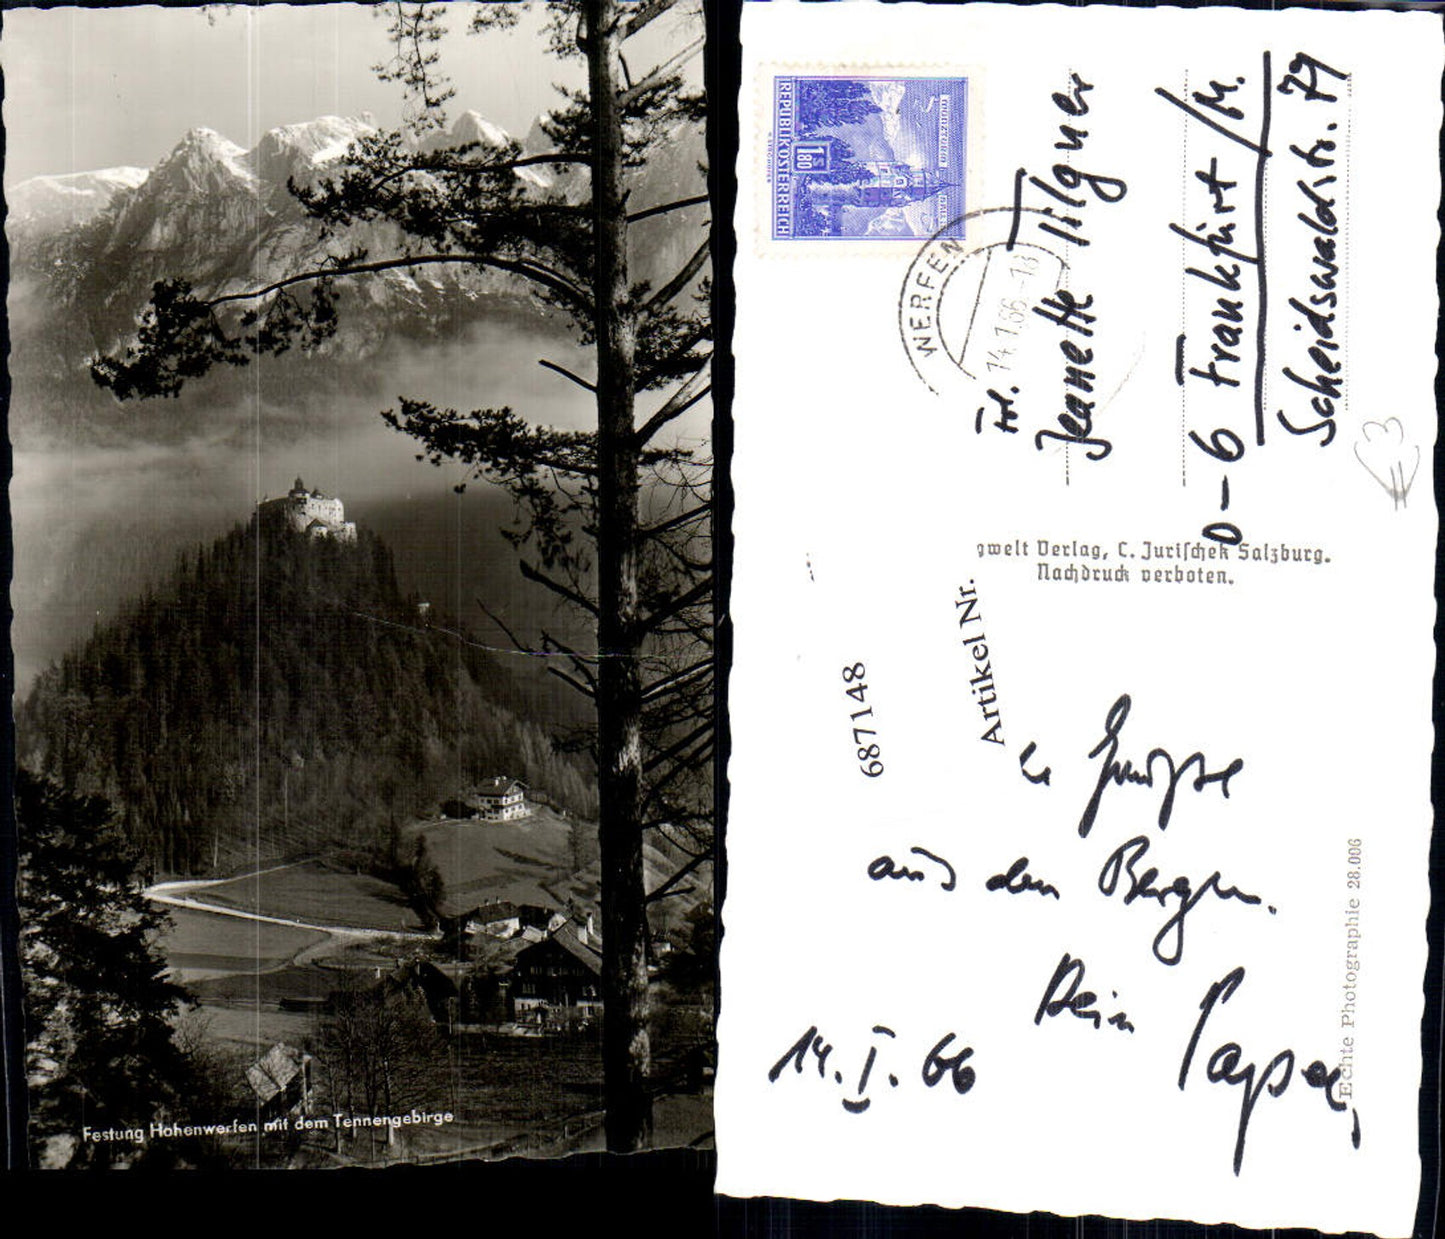 Festung Hohenwerfen mit dem Tennengebirge
REPUBLIK ÖSTERREICH
1.80
S
WERFEN
14.1.66-18
Frl.
Jeanette Tilgner
D-6 Frankfurt/M.
Scheidswaldstr. 79
€3
gwelt Verlag, C. Jurischek Salzburg.
Nachdruck verboten.
Artikel Nr.
687148
Grüsse
aus den Bergen.
Dein Papa
14.I.66
Echte Photographie 28.006